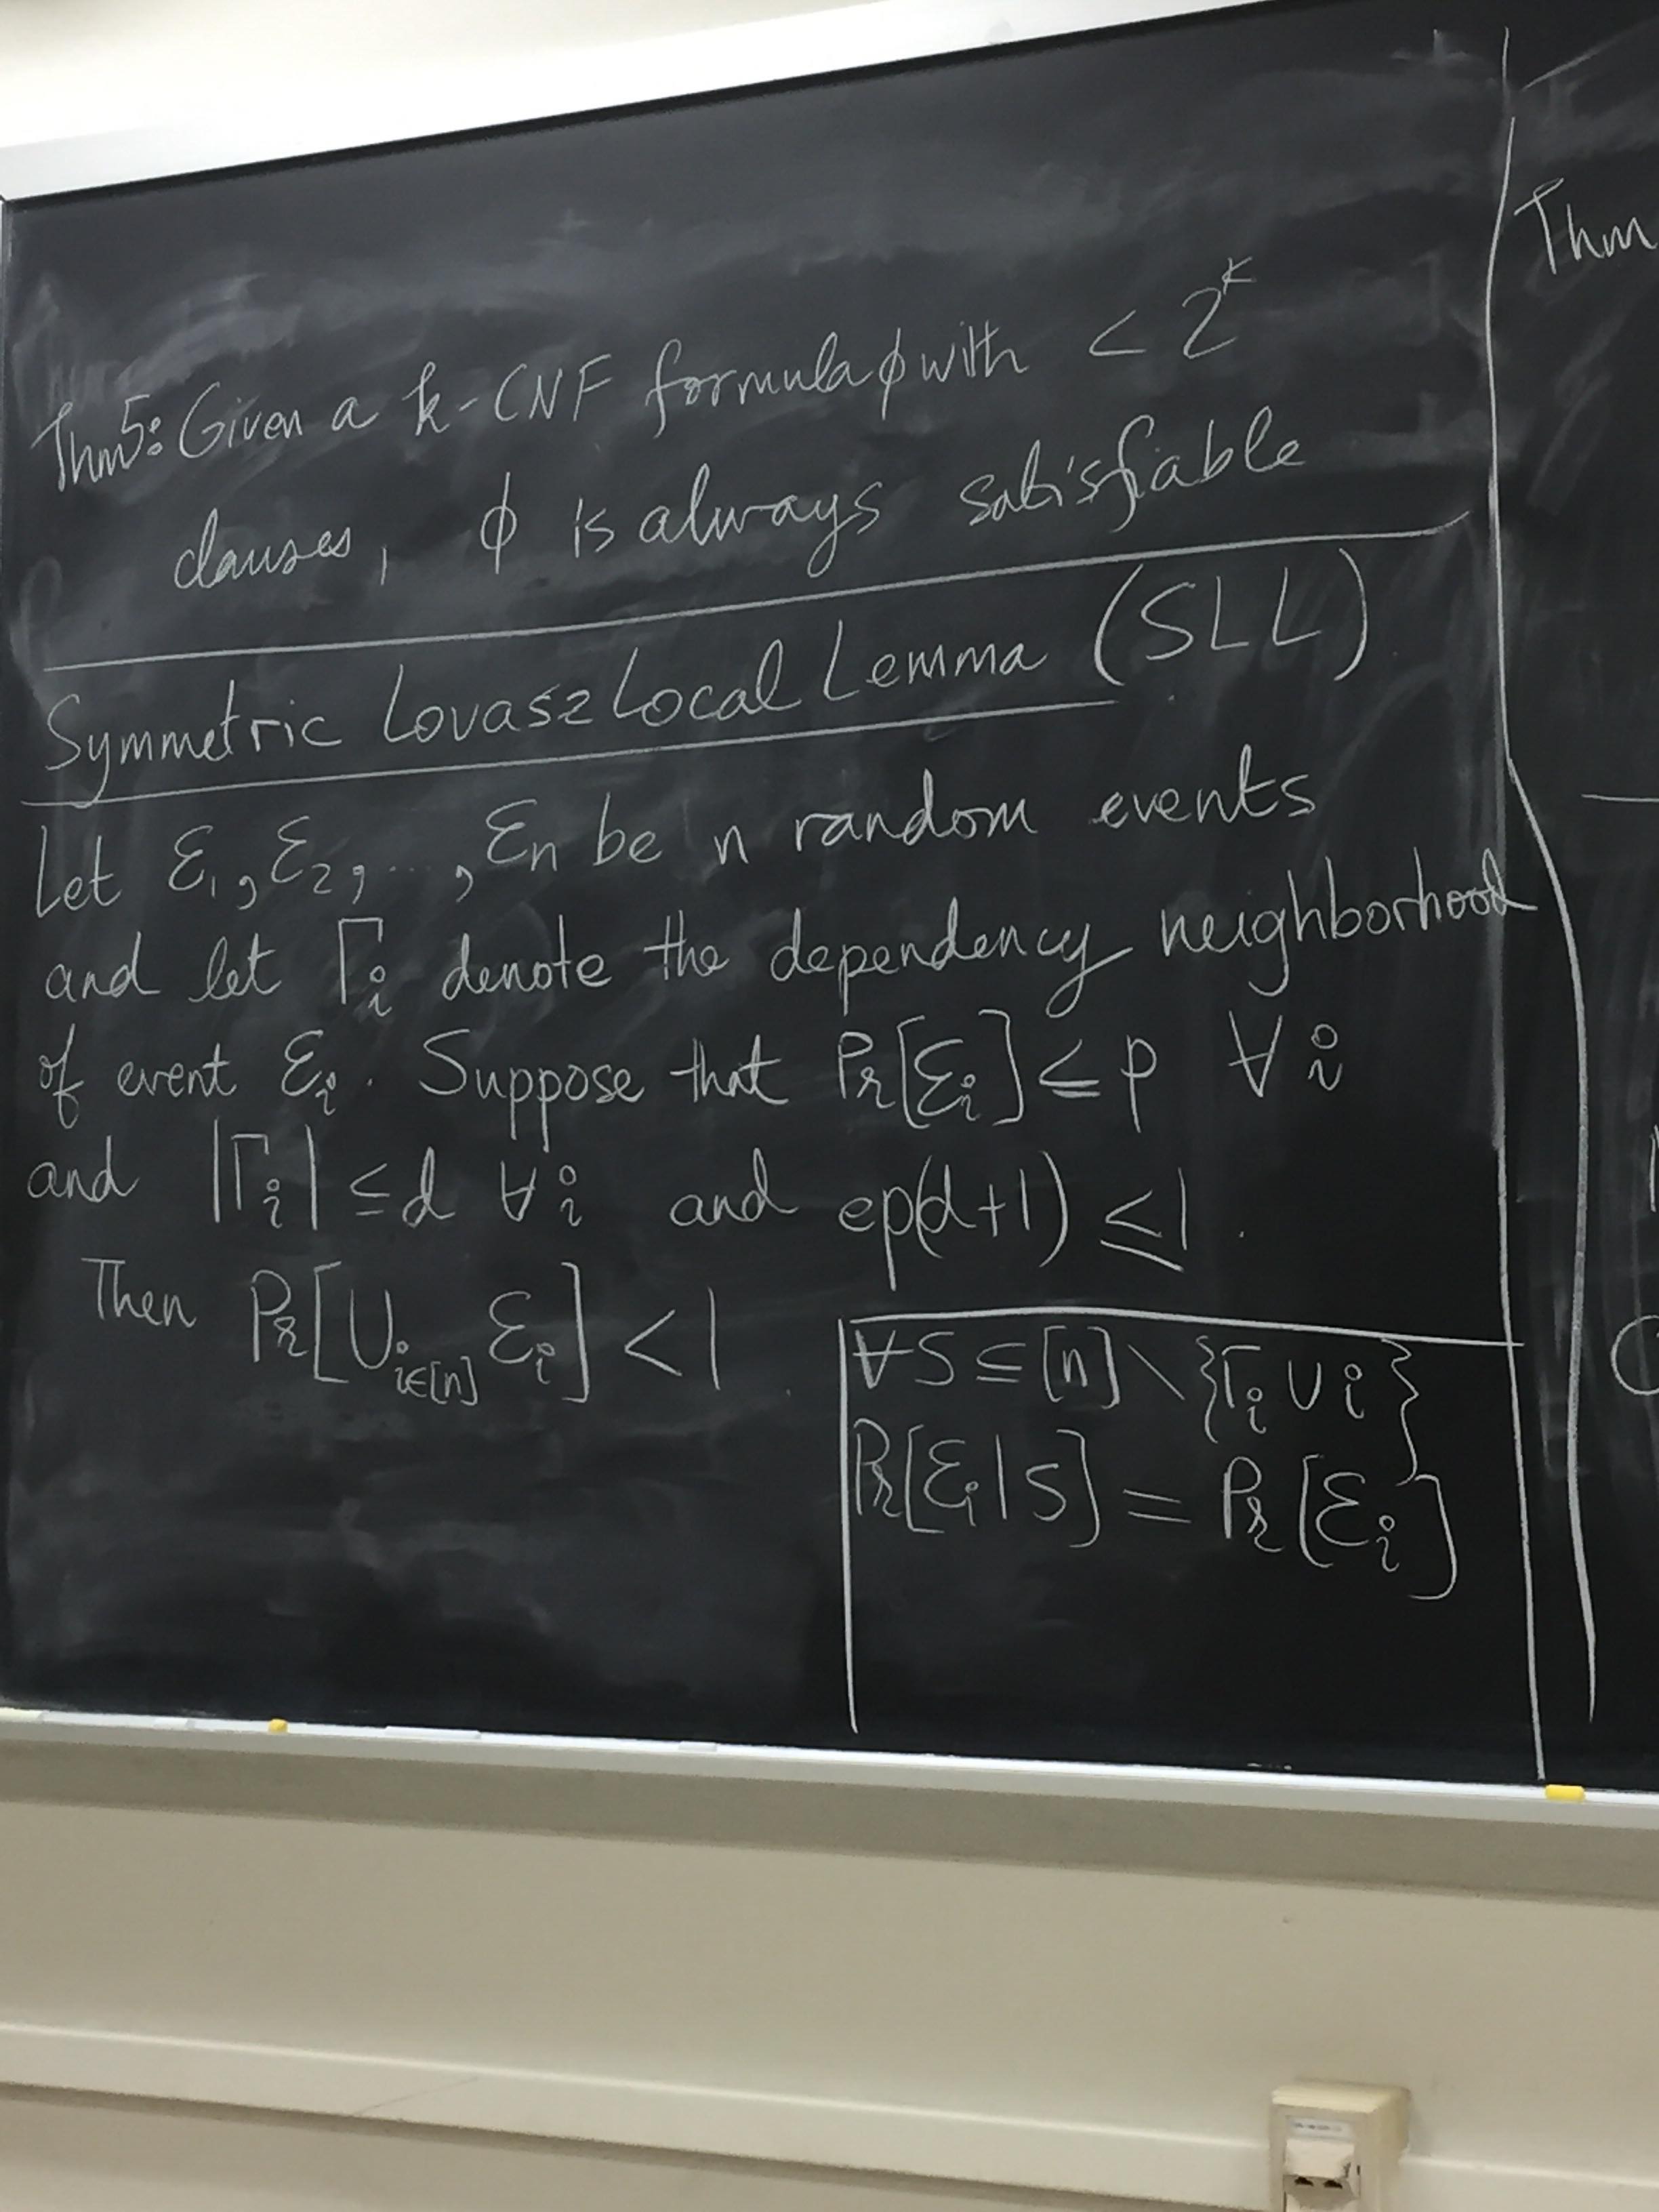 Thm5: Given a k-CNF formula ϕ with < 2^k
clauses, ϕ is always satisfiable
Symmetric Lovasz Local Lemma (SLL)
Let Ɛ₁, Ɛ₂, ..., Ɛn be n random events
and let Γᵢ denote the dependency neighborhood
of event Ɛᵢ. Suppose that Pr[Ɛᵢ] ≤ p ∀i
and |Γᵢ| ≤ d ∀i and ep(d+1) ≤ 1.
Then Pr[∪_{i∈[n]} Ɛᵢ] < 1.
∀S ⊆ [n] \ {Γᵢ ∪ i}
Pr[Ɛᵢ | S] = Pr[Ɛᵢ]
Thm